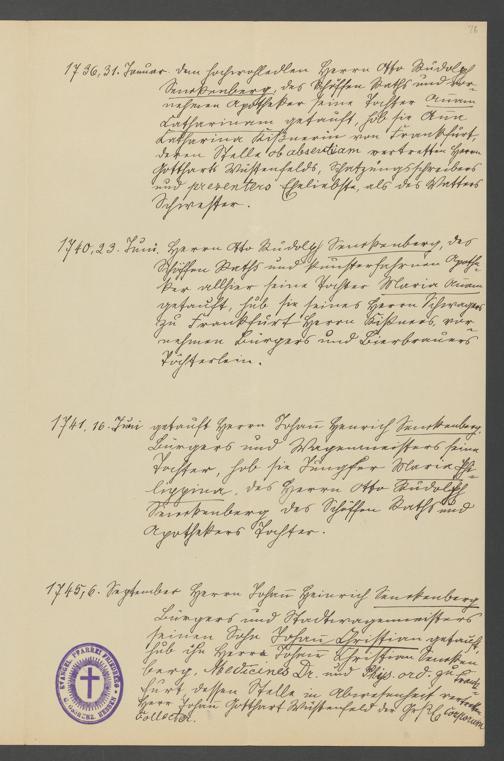 76
1736, 31. Januar. dem hochwohledlen Herrn Otto Rudolph
Senckenberg, des Schöffen Raths und vor-
nehmen Apotheker seine Tochter Annam
Catharinam getauft, hob sie Anna
Catharina Kißnerin von Frankfurt
deren Stelle ob absentiam vertretten Herrn
Gotthart Wüstenfelds, Schatzungsschreibers
und presentero Eheliebste, als des Vatters
Schwester.
1740, 23. Juni. Herrn Otto Rudolph Senckenberg, des
Schöffen Raths und kunsterfahrnen Apothe-
ker allhier seine Tochter Maria Annam
getauft, hub sie seines Herrn Schwagers
zu Frankfurt Herrn Kißners, vor-
nehmen Bürgers und Bierbrauers
Töchterlein.
1741, 16. Juni getauft Herrn Johann Henrich Senckenberg,
Bürgers und Wagenmeisters seine
Tochter, hob sie Jungfer Maria Phi-
lippina, des Herrn Otto Rudolph
Senckenberg des Schöffen Raths und
Apothekers Tochter.
1745, 6. September Herrn Johann Heinrich Senckenberg
Bürgers und Stadtwagemeisters
seinen Sohn Johann Christian getauft,
hub ihn Herr Johann Christian Sencken
berg, Medicines Dr. und Phys. ord. zu Frank-
furt, dessen Stelle in Abwesenheit vertretten
Herr Johann Gotthart Wüstenfeld der Gesell.
Collector.
EVANGEL. PFARREI FRIEDBERG
HESSEN